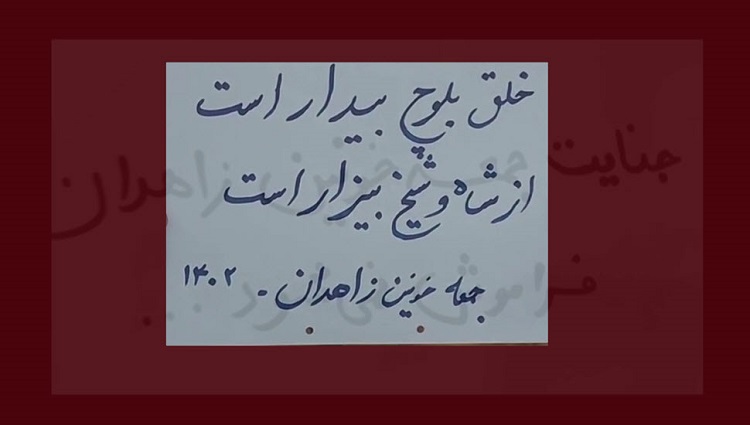 خلق بلوچ بیدار است
از شاه و شیخ بیزار است
جمعه خونین زاهدان - ۱۴۰۲
جنایت جمعه خونین زاهدان
فراموش نمی‌شود ...